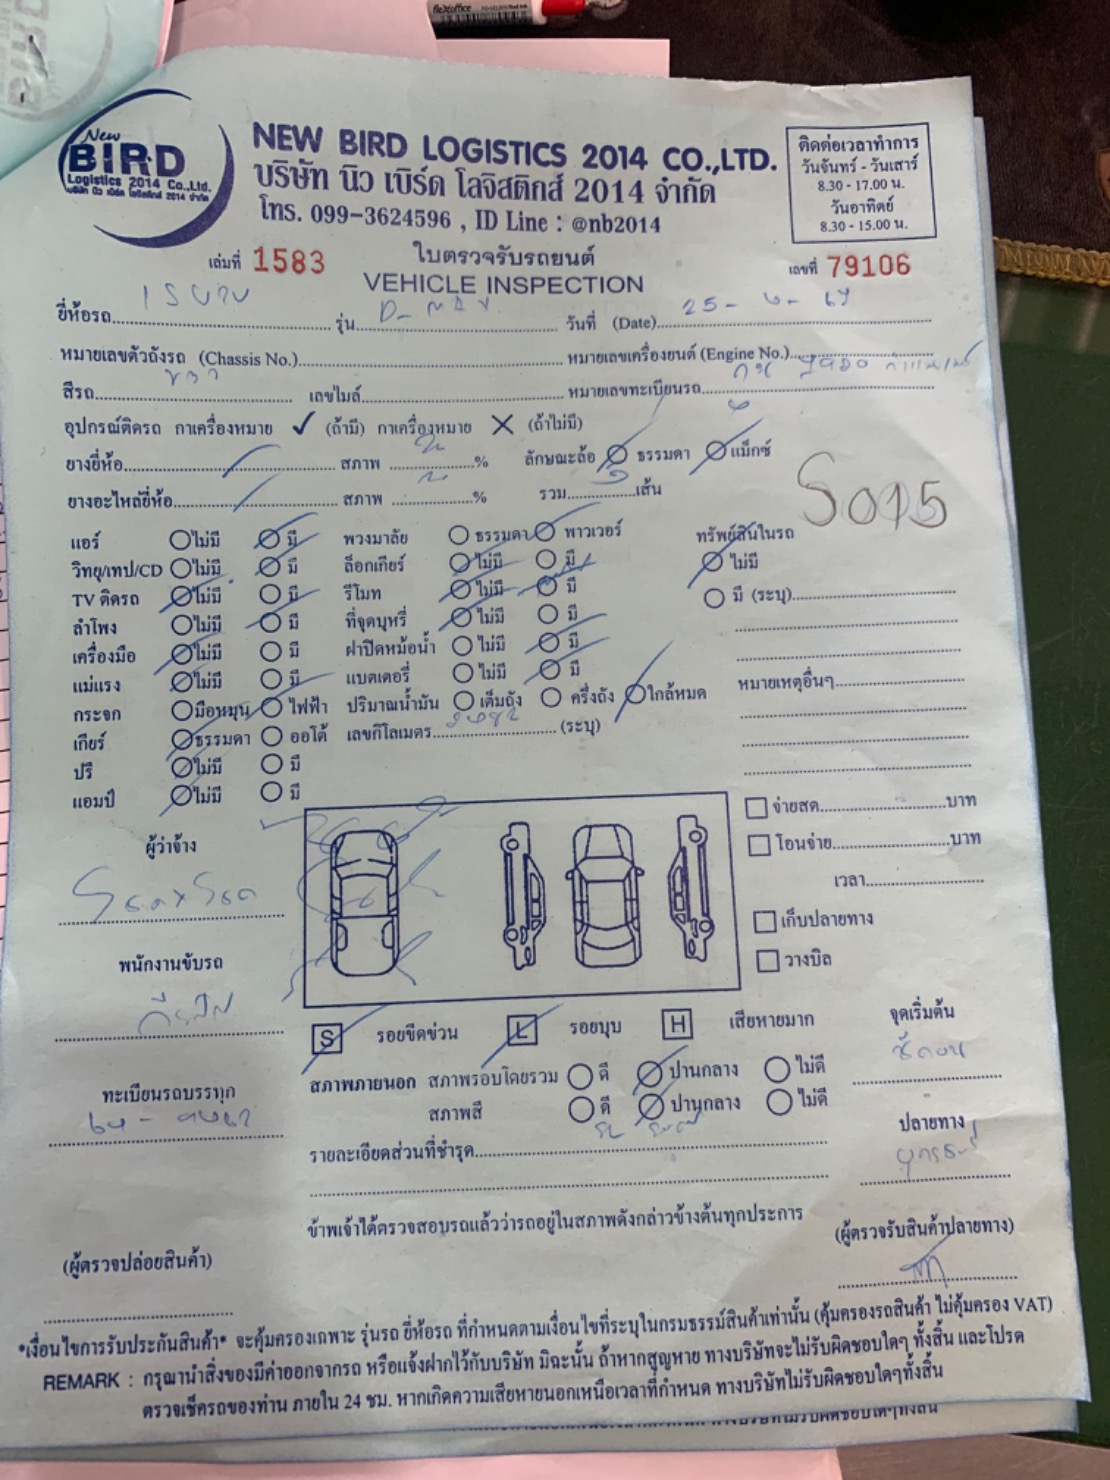 flexoffice
New
BIRD
Logistics 2014 Co.,Ltd.
บริษัท นิว เบิร์ด โลจิสติกส์ 2014 จำกัด
NEW BIRD LOGISTICS 2014 CO.,LTD.
บริษัท นิว เบิร์ด โลจิสติกส์ 2014 จำกัด
โทร. 099-3624596 , ID Line : @nb2014
ติดต่อเวลาทำการ
วันจันทร์ - วันเสาร์
8.30 - 17.00 น.
วันอาทิตย์
8.30 - 15.00 น.
เล่มที่ 1583
ใบตรวจรับรถยนต์
VEHICLE INSPECTION
เลขที่ 79106
ยี่ห้อรถ ISUZU รุ่น D-MAX วันที่ (Date) 25-
หมายเลขตัวถังรถ (Chassis No.) หมายเลขเครื่องยนต์ (Engine No.)
สีรถ ขาว เลขไมล์ หมายเลขทะเบียนรถ
อุปกรณ์ติดรถ กาเครื่องหมาย ✓ (ถ้ามี) กาเครื่องหมาย ✕ (ถ้าไม่มี)
ยางยี่ห้อ สภาพ % ลักษณะล้อ ธรรมดา แม็กซ์
ยางอะไหล่ยี่ห้อ สภาพ % รวม เส้น
แอร์ ไม่มี มี พวงมาลัย ธรรมดา พาวเวอร์ ทรัพย์สินในรถ
วิทยุ/เทป/CD ไม่มี มี ล็อกเกียร์ ไม่มี มี ไม่มี
TV ติดรถ ไม่มี มี รีโมท ไม่มี มี มี (ระบุ)
ลำโพง ไม่มี มี ที่จุดบุหรี่ ไม่มี มี
เครื่องมือ ไม่มี มี ฝาปิดหม้อน้ำ ไม่มี มี
แม่แรง ไม่มี มี แบตเตอรี่ ไม่มี มี หมายเหตุอื่นๆ
กระจก มือหมุน ไฟฟ้า ปริมาณน้ำมัน เต็มถัง ครึ่งถัง ใกล้หมด
เกียร์ ธรรมดา ออโต้ เลขกิโลเมตร (ระบุ)
ปรี ไม่มี มี
แอมป์ ไม่มี มี
จ่ายสด บาท
ผู้ว่าจ้าง
โอนจ่าย บาท
เวลา
เก็บปลายทาง
พนักงานขับรถ
วางบิล
S รอยขีดข่วน L รอยบุบ H เสียหายมาก
จุดเริ่มต้น
สภาพภายนอก สภาพรอบโดยรวม ดี ปานกลาง ไม่ดี
ทะเบียนรถบรรทุก
สภาพสี ดี ปานกลาง ไม่ดี
ปลายทาง
รายละเอียดส่วนที่ชำรุด
ข้าพเจ้าได้ตรวจสอบรถแล้วว่ารถอยู่ในสภาพดังกล่าวข้างต้นทุกประการ
(ผู้ตรวจรับสินค้าปลายทาง)
(ผู้ตรวจปล่อยสินค้า)
*เงื่อนไขการรับประกันสินค้า* จะคุ้มครองเฉพาะ รุ่นรถ ยี่ห้อรถ ที่กำหนดตามเงื่อนไขที่ระบุในกรมธรรม์สินค้าเท่านั้น (คุ้มครองรถสินค้า ไม่คุ้มครอง VAT)
REMARK : กรุณานำสิ่งของมีค่าออกจากรถ หรือแจ้งฝากไว้กับบริษัท มิฉะนั้น ถ้าหากสูญหาย ทางบริษัทจะไม่รับผิดชอบใดๆ ทั้งสิ้น และโปรด
ตรวจเช็ครถของท่าน ภายใน 24 ชม. หากเกิดความเสียหายนอกเหนือเวลาที่กำหนด ทางบริษัทไม่รับผิดชอบใดๆทั้งสิ้น